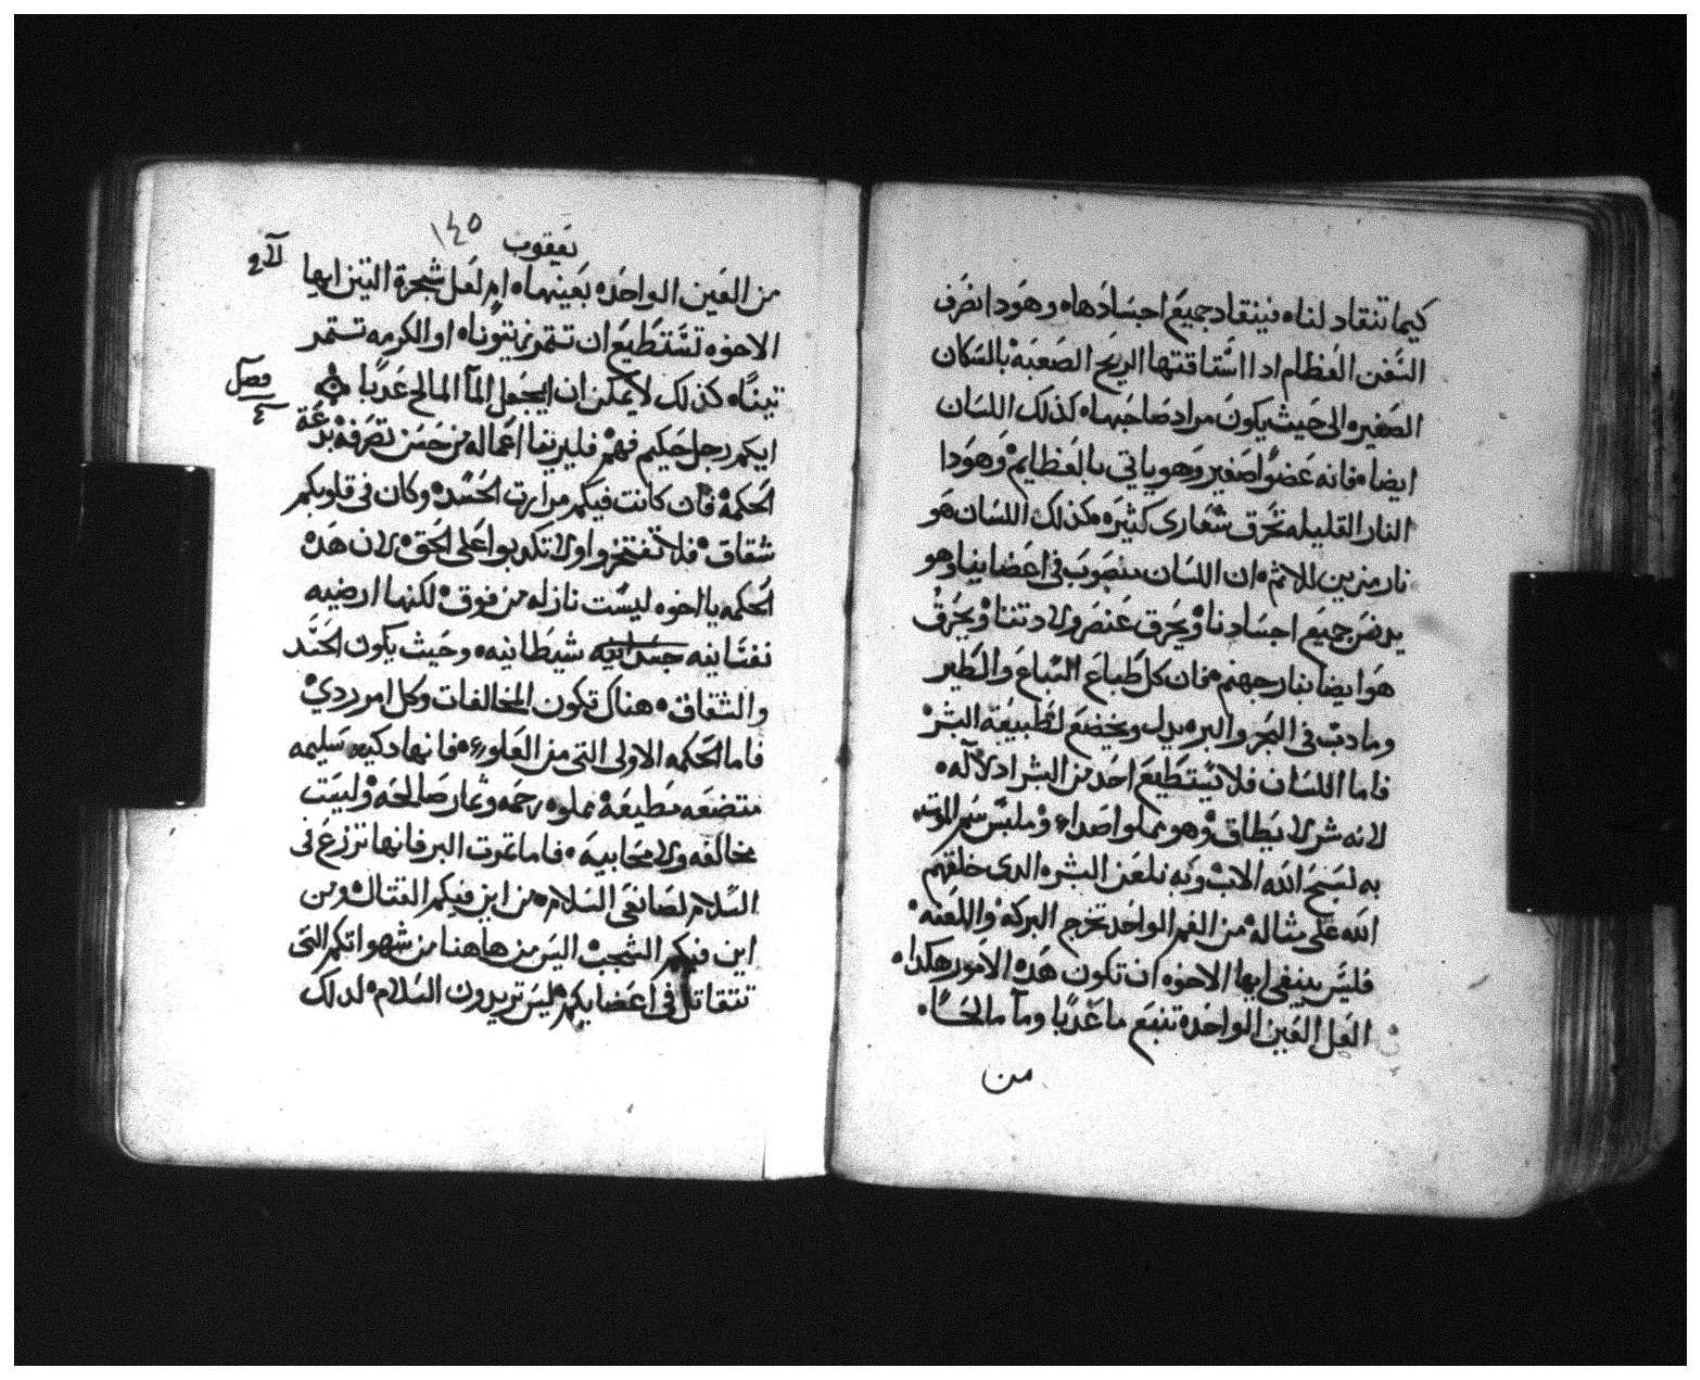 كيما تنقاد لنا، فينقاد جميع اجسادها، وهودا نصرف
السفن العظام ادا استاقتها الريح الصعبة بالسكان
الصغيره الى حيث يكون مراد صاحبها، كذلك اللسان
ايضا، فانه عضوا صغير وهو ياتي بالعظايم، وهودا
النار القليله تحرق شعارى كثيره، كذلك اللسان هو
نار مزين للاثم، ان اللسان منصوب في اعضاينا وهو
يدنس جميع اجسادنا، ويحرق عنصر ولادتنا، ويحرق
هو ايضا بنار جهنم، فان كل طباع السباع والطير
وما دب في البحر والبر، يدل ويخضع لطبيعة البشر
فاما اللسان فلا يستطيع احد من البشر ادلآله،
لانه شر لا يطاق، وهو مملوا صداء، وملبس سم الموت،
به نسبح الله الاب، وبه نلعن البشر، الدى خلقهم
الله على مثاله، من الفم الواحد تخرج البركه، واللعنه،
فليس ينبغى ايها الاخوه ان تكون هده الامور هكدا،
العل العين الواحده تنبع ما عدبا وما مالحا،
من
يعقوب
١٤٥
من العين الواحده بعينها، ام لعل شجرة التين ايها
الاخوه تستطيع ان تتمر زيتونا، او الكرمه تستمر
تينا، كذلك لا يمكن ان يجعل المآ المالح عدبا
فصل
٤
ايكم رجل حكيم فهم، فليرينا اعماله من حسن تصرفه بدعة
الحكمه، فان كانت فيكم مرارت الحسد، وكان في قلوبكم
شقاق، فلا تفتخروا ولا تكدبوا على الحق، لان هده
الحكمه يا اخوه ليست نازله من فوق، لكنها ارضيه
نفسانيه جسدانيه شيطانيه، وحيث يكون الحسد
والشقاق، هناك تكون المخالفات وكل امر ردي
فاما الحكمه الاولى التى من العلو، فانها دكيه سليمه
متضعه مطيعه، مملوه رحمه وثمار صالحه، وليست
مخالفه ولا محابيه، فاما تمرت البر فانها تزرع فى
السلام لصانعى السلام، من اين فيكم القتال، ومن
اين فيكم الشجب، اليس من هاهنا من شهواتكم التى
تتقاتل في اعضايكم، ليس تريدون السلام، لدلك